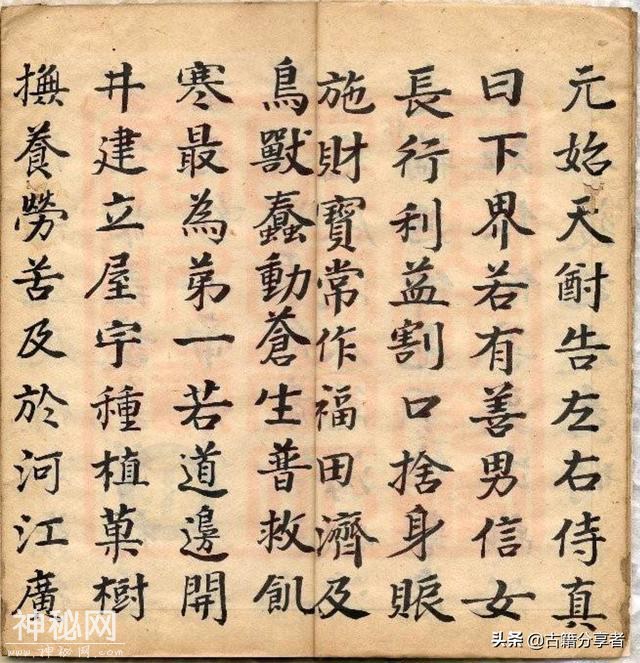 元始天尊告左右侍真
曰下界若有善男信女
長行利益割口捨身賑
施財寶常作福田濟及
鳥獸蠢動蒼生普救飢
寒最為第一若道邊開
井建立屋宇種植菓樹
撫養勞苦及於河江廣
神秘网
头条 @古籍分享者